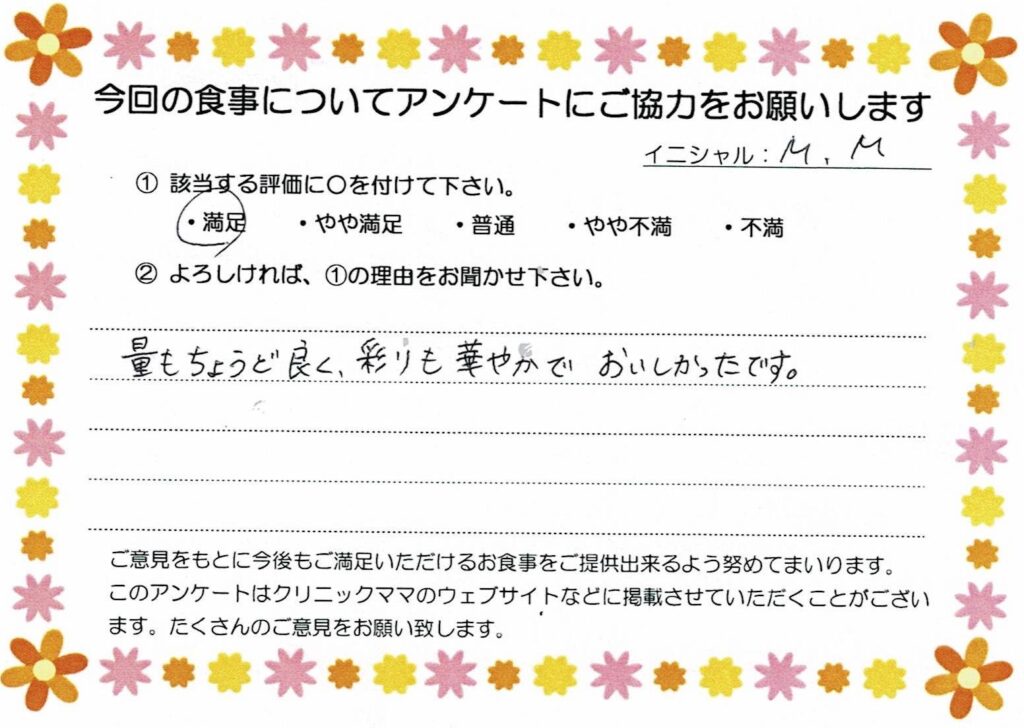 今回の食事についてアンケートにご協力をお願いします
イニシャル：M、M
① 該当する評価に〇を付けて下さい。
・満足 ・やや満足 ・普通 ・やや不満 ・不満
② よろしければ、①の理由をお聞かせ下さい。
量もちょうど良く、彩りも華やかで おいしかったです。
ご意見をもとに今後もご満足いただけるお食事をご提供出来るよう努めてまいります。
このアンケートはクリニックママのウェブサイトなどに掲載させていただくことがござい
ます。たくさんのご意見をお願い致します。